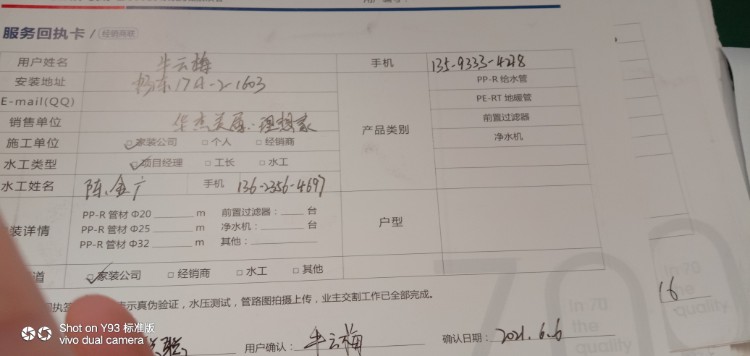 服务回执卡 / 经销商联
用户姓名 牛云梅 手机 135-9333-4218
安装地址 17#-2-1603 PP-R 给水管
E-mail(QQ) PE-RT 地暖管
销售单位 华杰美居·理想家 产品类别 前置过滤器
施工单位 ☑家装公司 □个人 □经销商 净水机
水工类型 ☑项目经理 □工长 □水工
水工姓名 陈金广 手机 136-2356-4697
装详情 PP-R 管材 Φ20 m 前置过滤器: 台 户型
PP-R 管材 Φ25 m 净水机: 台
PP-R 管材 Φ32 m 其他:
道 ☑家装公司 □经销商 □水工 □其他
示真伪验证,水压测试,管路图拍摄上传,业主交割工作已全部完成。
用户确认: 牛云梅 确认日期: 2021.6.6
In 70
the
quality
16
Shot on Y93 标准版
vivo dual camera